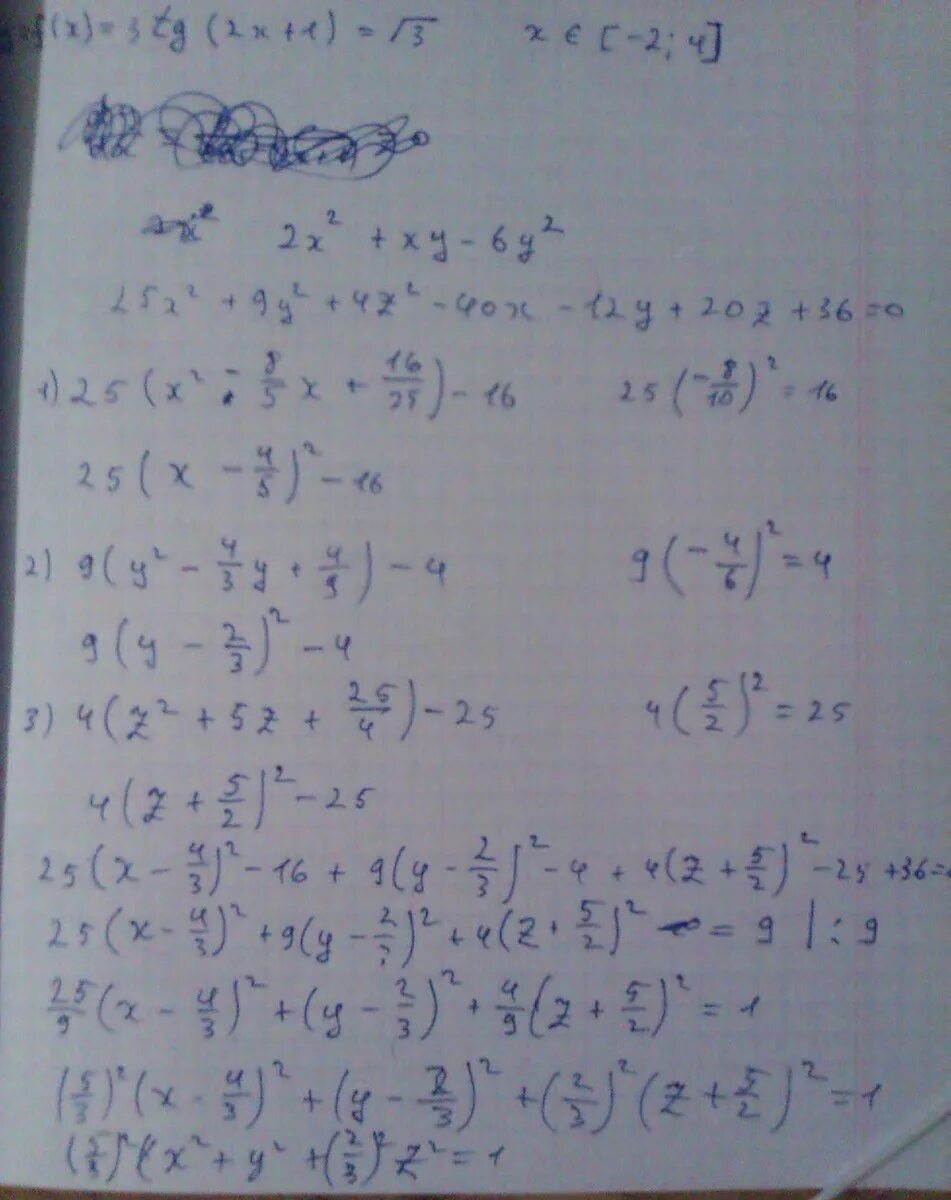 f(x) = 3 tg (2x+1) = √3    x ∈ [-2; 4]
2x² + xy - 6y²
25x² + 9y² + 4z² - 40x - 12y + 20z + 36 = 0
1) 25(x² - 8/5 x + 16/25) - 16    25(-8/10)² = 16
25(x - 4/5)² - 16
2) 9(y² - 4/3 y + 4/9) - 4    9(-4/6)² = 4
9(y - 2/3)² - 4
3) 4(z² + 5z + 25/4) - 25    4(5/2)² = 25
4(z + 5/2)² - 25
25(x - 4/3)² - 16 + 9(y - 2/3)² - 4 + 4(z + 5/2)² - 25 + 36 =
25(x - 4/3)² + 9(y - 2/3)² + 4(z + 5/2)² = 9 | : 9
25/9 (x - 4/3)² + (y - 2/3)² + 4/9 (z + 5/2)² = 1
(5/3)² (x - 4/3)² + (y - 2/3)² + (2/3)² (z + 5/2)² = 1
(5/3)² x² + y² + (2/3)² z² = 1